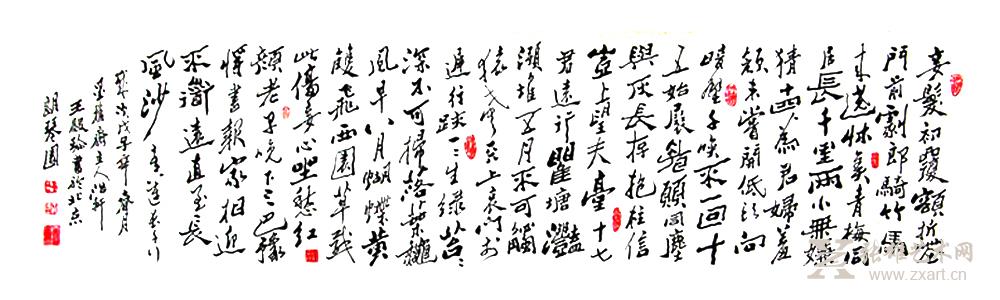 妾髮初覆額折花
門前劇郎騎竹馬
来遶牀弄青梅同
居長干里兩小無嫌
猜十四為君婦羞
顏未嘗開低頭向
暗壁千喚不一回十
五始展眉願同塵
與灰長存抱柱信
豈上望夫臺十七
君遠行瞿塘灩
澦堆五月不可觸
猿聲天上哀門前
遲行跡一一生緑苔苔
深不可掃落葉秋
風早八月蝴蝶黄
雙飛西園草感
此傷妾心坐愁紅
顏老早晚下三巴預
將書報家相迎
不道遠直至長
風沙 李白長干行
歲次戊子年 月
齋主人浩軒
王殿 書於北京
朗琴園
张雄艺术网
www.zxart.cn